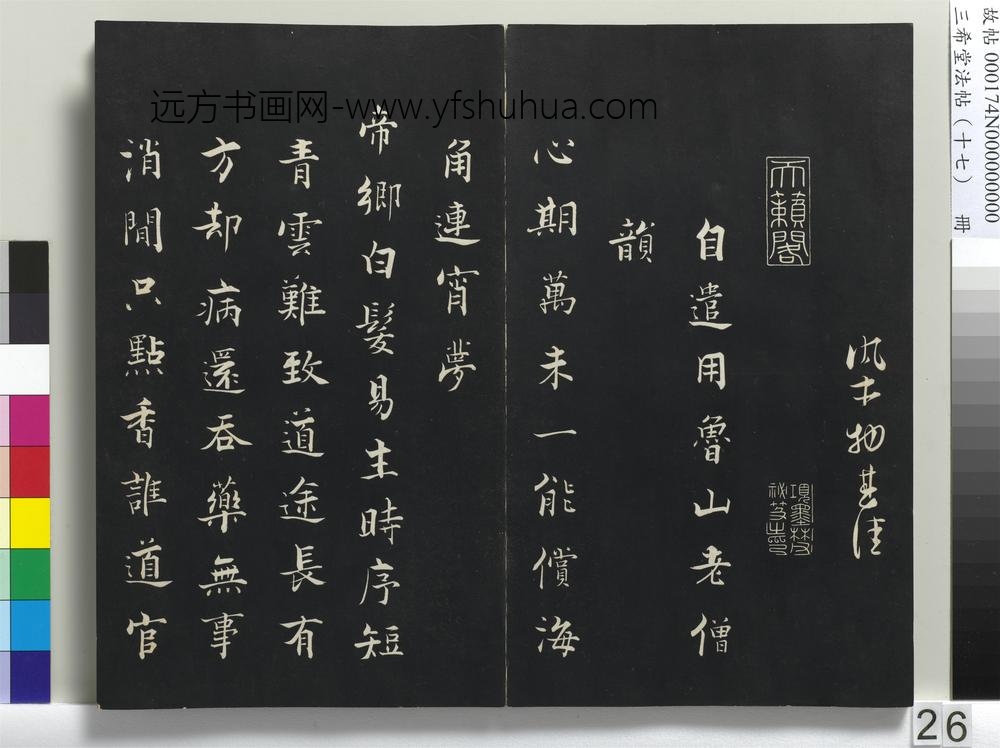 故帖 000174N000000000
三希堂法帖（十七） 冊
远方书画网-www.yfshuhua.com
風土物甚佳
天籟閣
項墨林
祕笈之印
自遣用魯山老僧
韻
心期萬未一能償海
角連宵夢
帝鄉白髮易生時序短
青雲難致道途長有
方却病還吞藥無事
消閒只點香誰道官
26